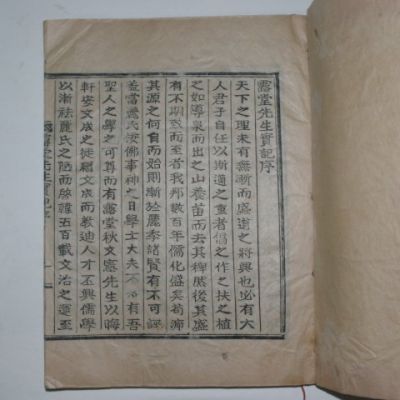 露堂先生實記序
天下之理未有無漸而盛道之將興也必有大
人君子自任以斯道之重者倡之作之扶之植
之如導泉而出之山養苗而去其稗然後其盛
有不期致而至者我邦數百年儒化盛矣苟泝
其源之何自而始則漸於麗季諸賢有不可誣
盖當麗氏佞佛事神之日學士大夫不知有吾
聖人之學之可尊而有露堂秋文憲先生以晦
軒安文成之徒繼文成而教迪人才丕興儒學
以漸祛麗氏之陋而啓韓五百載文治之運至
露堂先生實記序